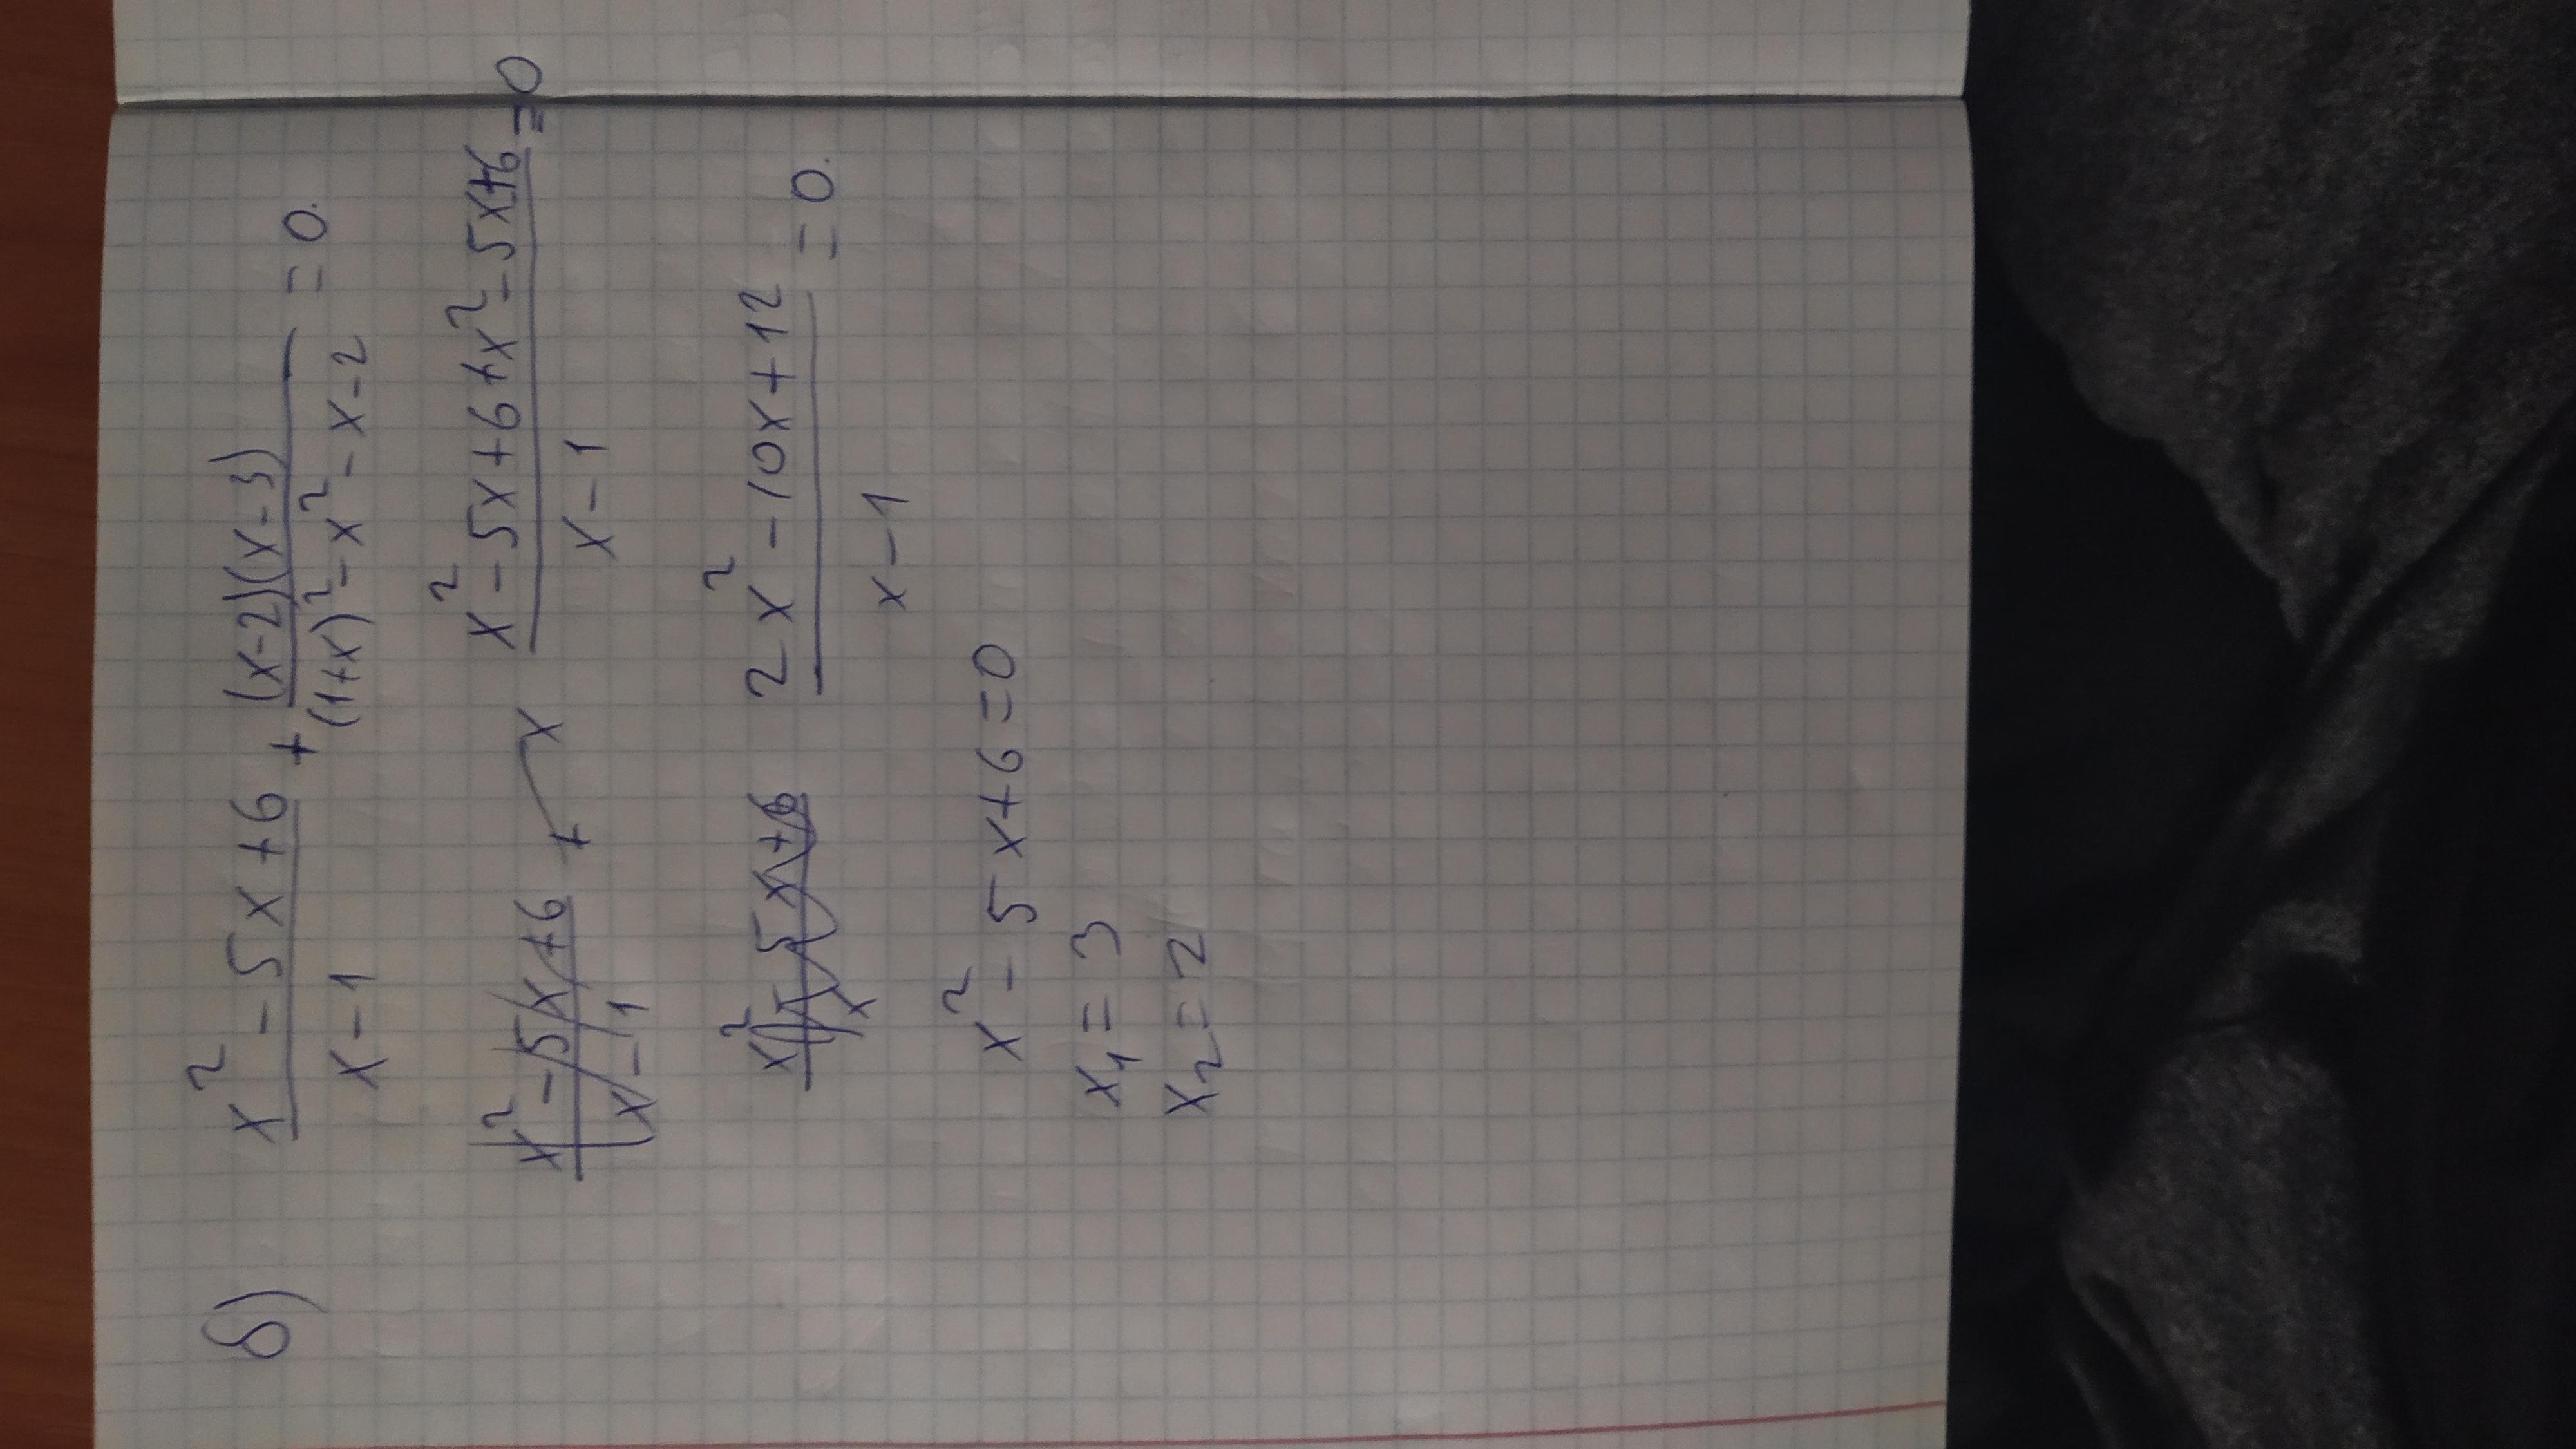 б) x² - 5x + 6 / x - 1 + (x-2)(x-3) / (1+x)² - x² - x - 2 = 0.
x² - 5x + 6 / x - 1 + x² - 5x + 6 + x² - 5x + 6 / x - 1 = 0
x² - 5x + 6 / x 2x² - 10x + 12 / x - 1 = 0.
x² - 5x + 6 = 0
x₁ = 3
x₂ = 2